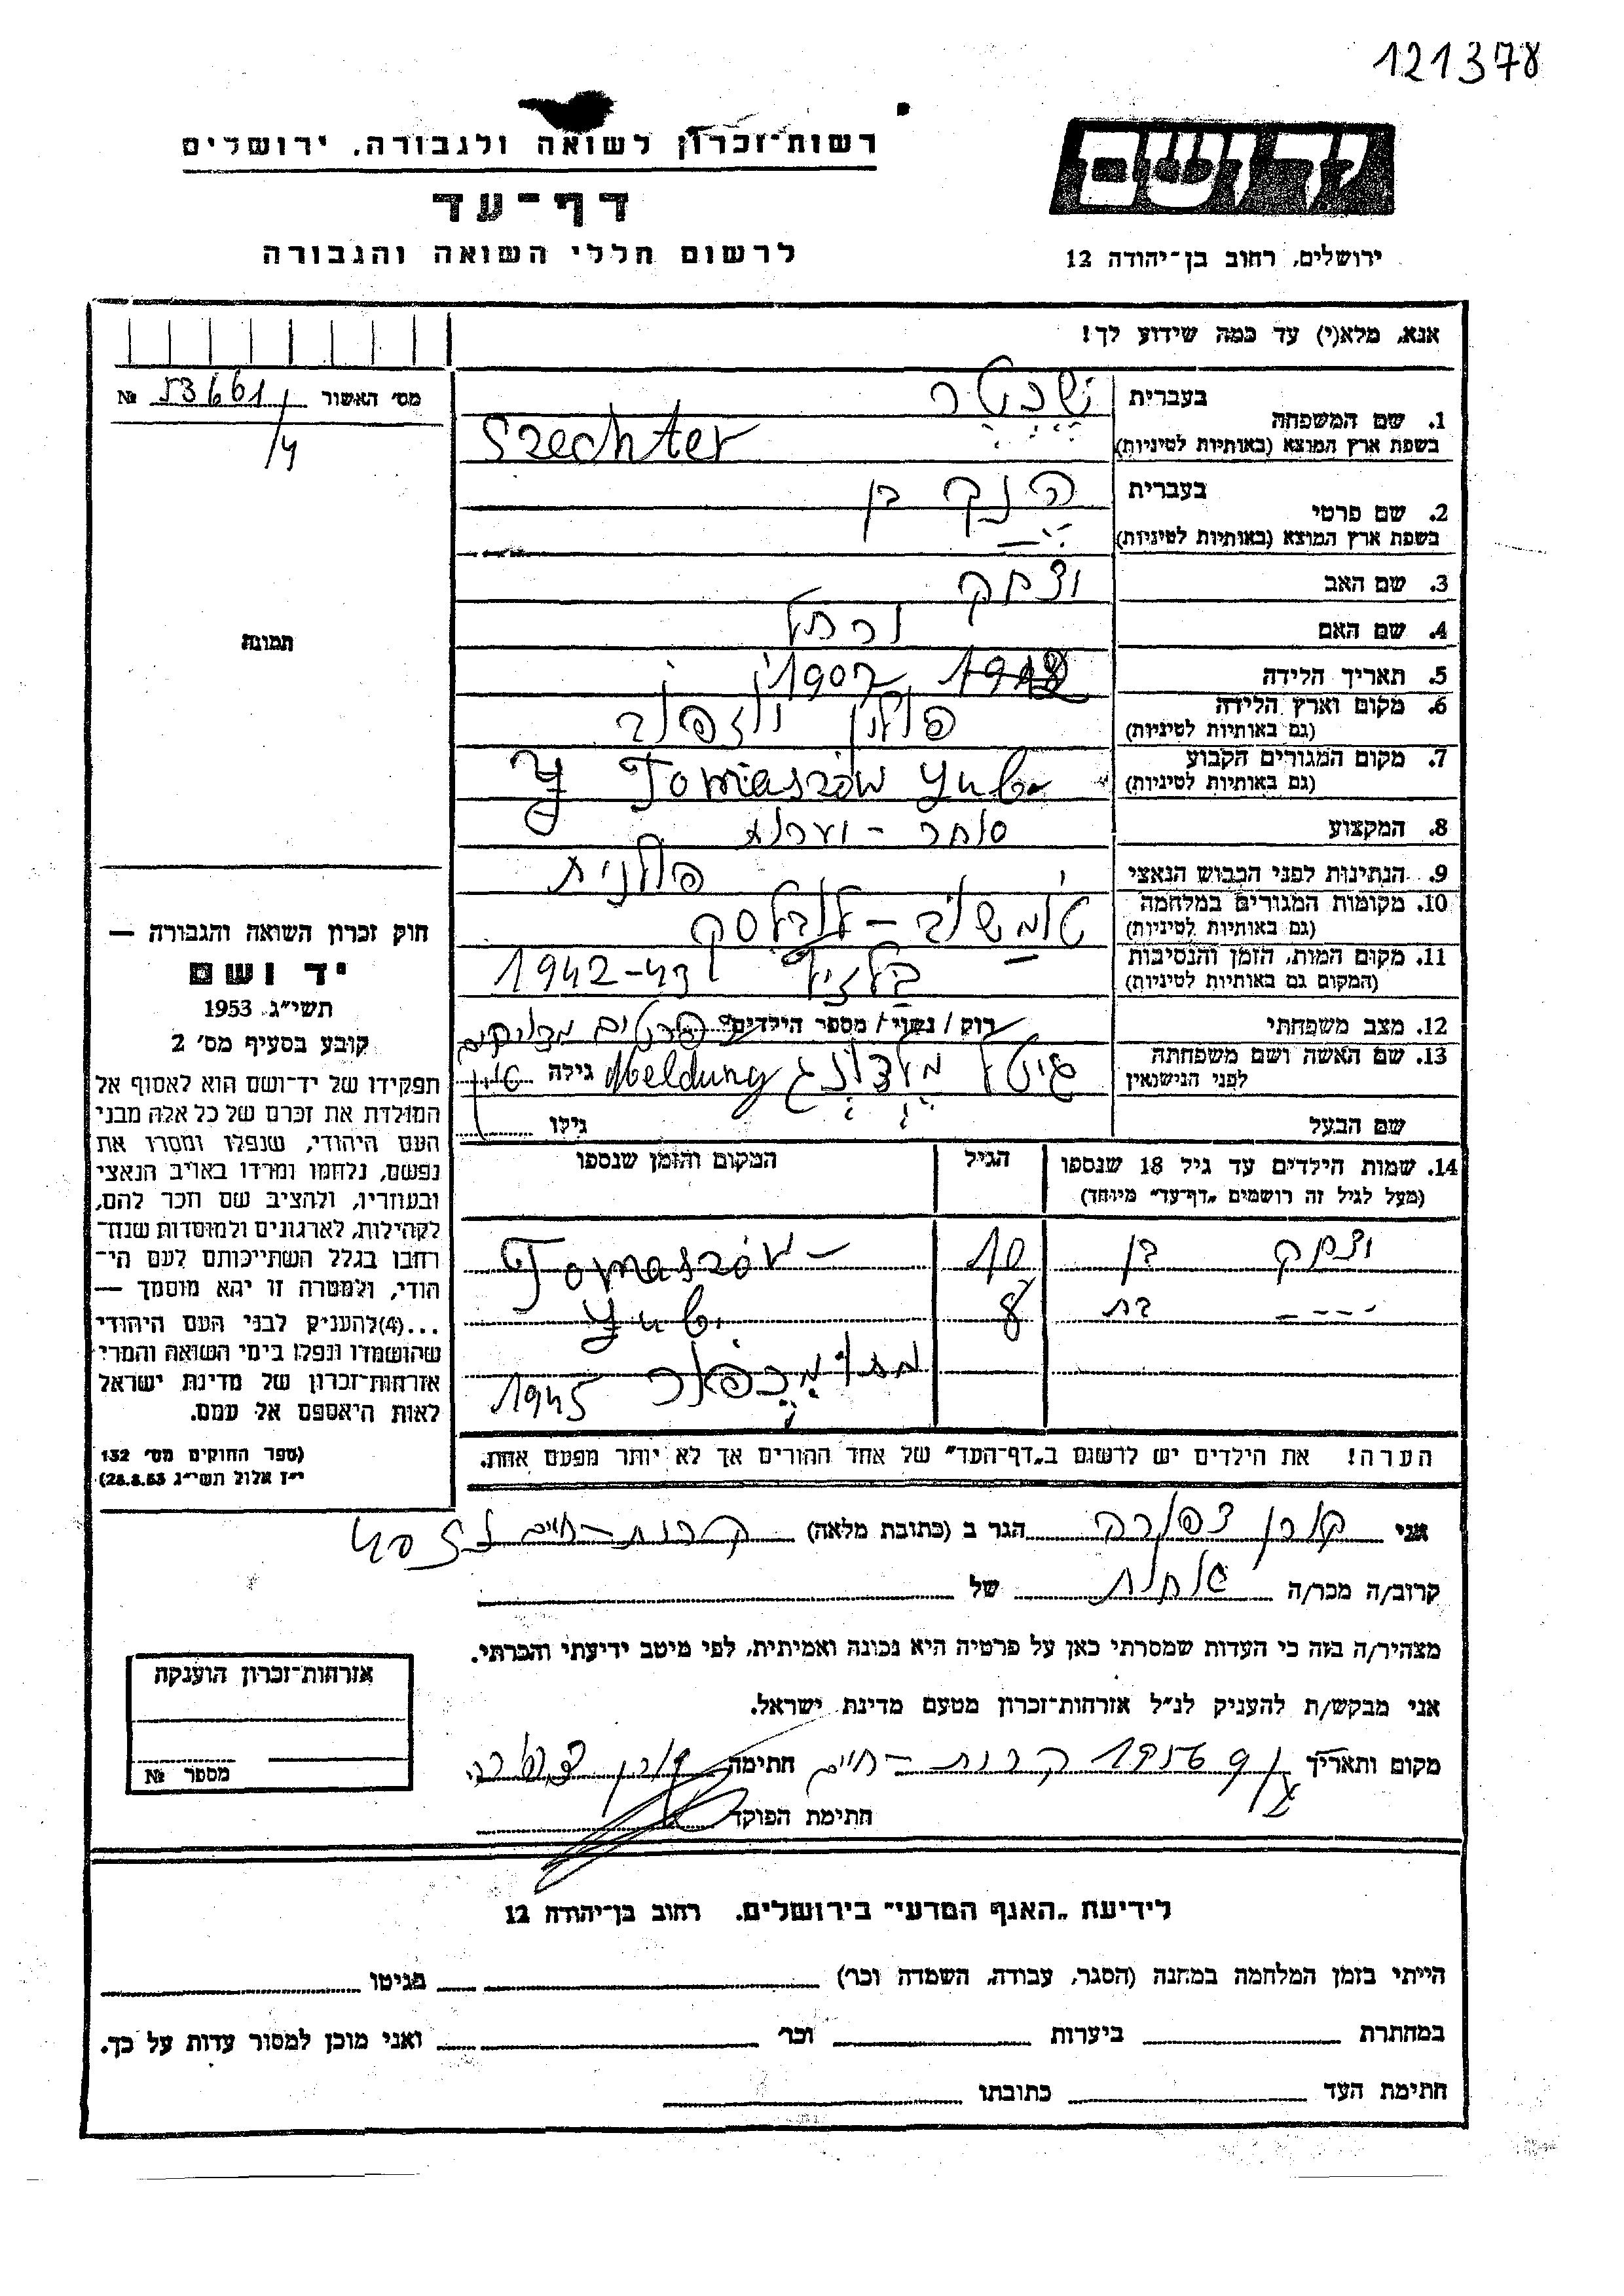 121378
יד ושם
רשות־זכרון לשואה ולגבורה, ירושלים
דף־עד
לרשום חללי השואה והגבורה
ירושלים, רחוב בן־יהודה 12
אנא, מלא(י) עד כמה שידוע לך!
מס׳ האשור 53661/4 №
תמונה
חוק זכרון השואה והגבורה —
יד ושם
תשי״ג 1953
קובע בסעיף מס׳ 2
תפקידו של יד־ושם הוא לאסוף אל
המולדת את זכרם של כל אלה מבני
העם היהודי, שנפלו ומסרו את
נפשם, נלחמו ומרדו באויב הנאצי
ובעוזריו, ולהציב שם וזכר להם,
לקהילות, לארגונים ולמוסדות שנח־
רבו בגלל השתייכותם לעם הי־
הודי, ולמטרה זו יהא מוסמך —
...(4)להעניק לבני העם היהודי
שהושמדו ונפלו בימי השואה והמרי
אזרחות־זכרון של מדינת ישראל
לאות היאספם אל עמם.
(ספר החוקים מס׳ 132
י״ז אלול תשי״ג 28.8.53)
1. שם המשפחה בעברית שכטר
בשפת ארץ המוצא (באותיות לטיניות) Szechter
2. שם פרטי בעברית הנק בן
בשפת ארץ המוצא (באותיות לטיניות)
3. שם האב יצחק
4. שם האם ורחל
5. תאריך הלידה 1907
6. מקום וארץ הלידה פולין יוזפוב
(גם באותיות לטיניות)
7. מקום המגורים הקבוע Tomaszów Lub.
(גם באותיות לטיניות)
8. המקצוע סוחר -
9. הנתינות לפני הכבוש הנאצי פולנית
10. מקומות המגורים במלחמה טומשוב - לובלסק
(גם באותיות לטיניות)
11. מקום המות, הזמן והנסיבות בלזץ 1942-43
(המקום גם באותיות לטיניות)
12. מצב משפחתי רווק / נשוי / מספר הילדים פרטים מדויקים
13. שם האשה ושם משפחתה גיטל מלדונג Meldung גילה אין
לפני הנישואין
שם הבעל גילו
14. שמות הילדים עד גיל 18 שנספו הגיל המקום והזמן שנספו
(מעל לגיל זה רושמים „דף־עד״ מיוחד)
יצחק בן 10 Tomaszów-
---- בת 8 Lub.
1945
הערה! את הילדים יש לרשום ב„דף־העד״ של אחד ההורים אך לא יותר מפעם אחת.
אני קורן צפורה הגר ב (כתובת מלאה) קרית-חיים
קרוב/ה מכר/ה גו אחות של
מצהיר/ה בזה כי העדות שמסרתי כאן על פרטיה היא נכונה ואמיתית, לפי מיטב ידיעתי והכרתי.
אני מבקש/ת להעניק לנ״ל אזרחות־זכרון מטעם מדינת ישראל.
מקום ותאריך קרית-חיים חתימה קורן צפורה
חתימת הפוקד
אזרחות־זכרון הוענקה
מספר №
לידיעת „האגף המדעי״ בירושלים. רחוב בן־יהודה 12
הייתי בזמן המלחמה במחנה (הסגר, עבודה, השמדה וכו׳) בגיטו
במחתרת ביערות וכו׳ ואני מוכן למסור עדות על כך.
חתימת העד כתובתו